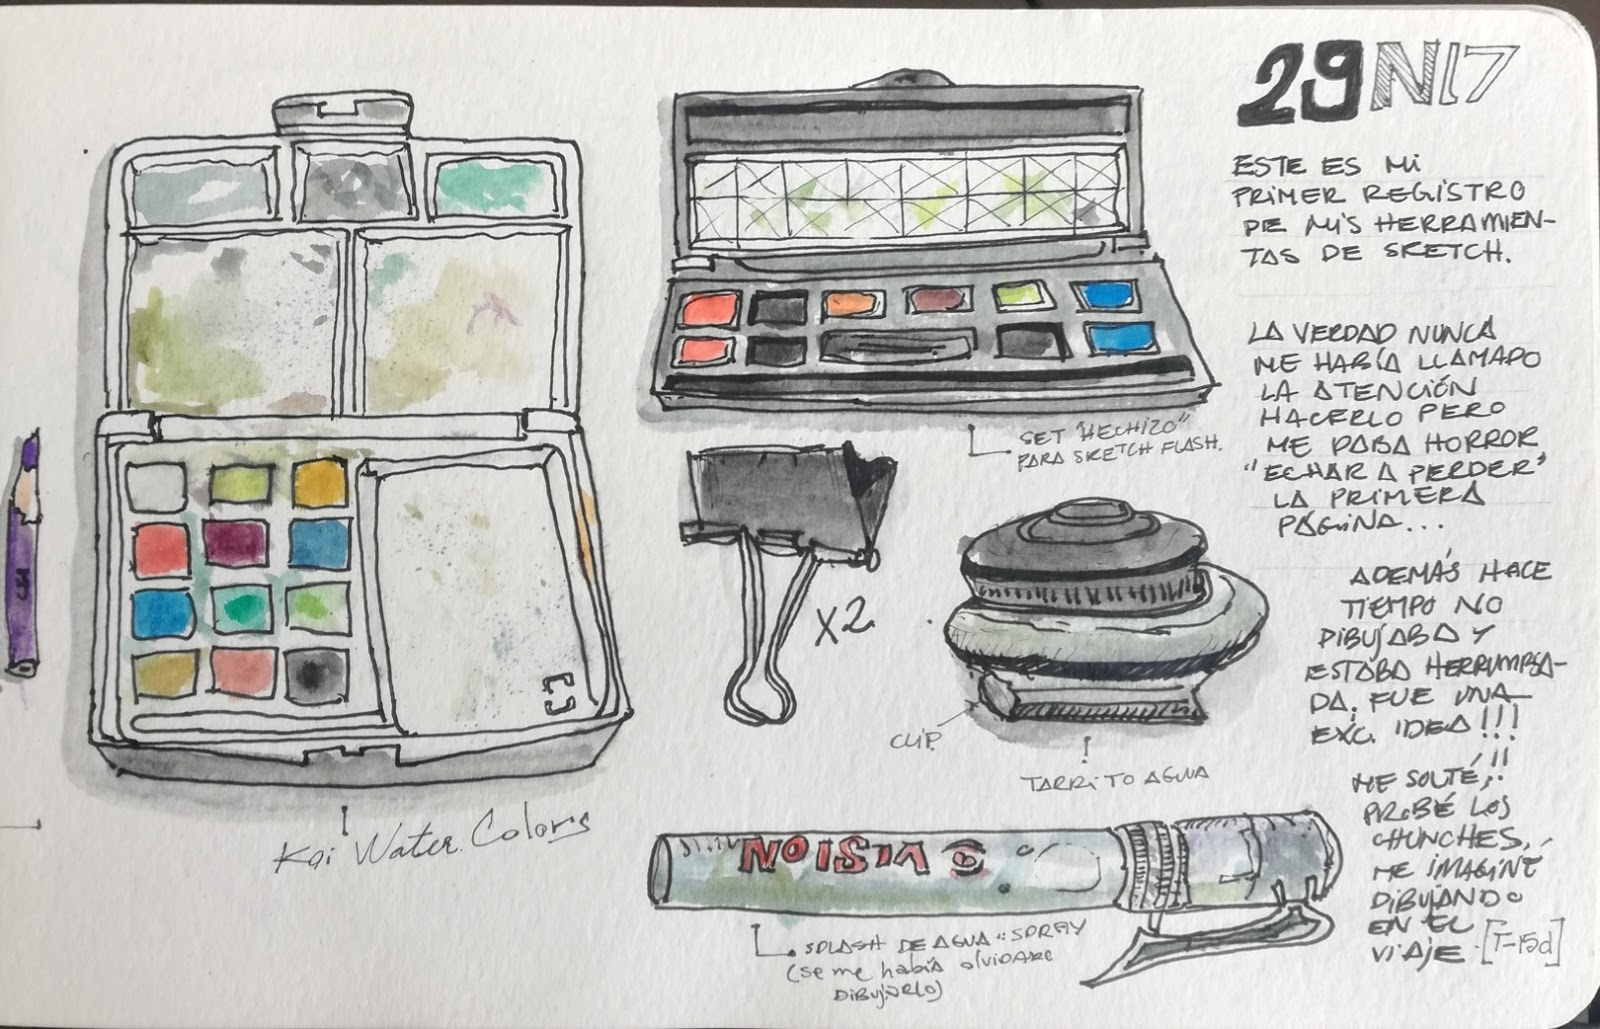 29N17
ESTE ES MI
PRIMER REGISTRO
DE MIS HERRAMIEN-
TAS DE SKETCH.
LA VERDAD NUNCA
ME HABÍA LLAMADO
LA ATENCIÓN
HACERLO PERO
ME DABA HORROR
"ECHAR A PERDER"
LA PRIMERA
PÁGINA...
ADEMÁS HACE
TIEMPO NO
DIBUJABA Y
ESTABA HERRUMBRA-
DA. FUE UNA
EXC. IDEA!!!
ME SOLTÉ,!!
PROBÉ LOS
CHUNCHES,
ME IMAGINÉ
DIBUJANDO
EN EL
VIAJE [T-15d]
SET "HECHIZO"
PARA SKETCH FLASH.
X2
CLIP.
TARRITO AGUA
Koi Water Colors
VISION
SPLASH DE AGUA "SPRAY
(se me había olvidado
DIBUJARLO)